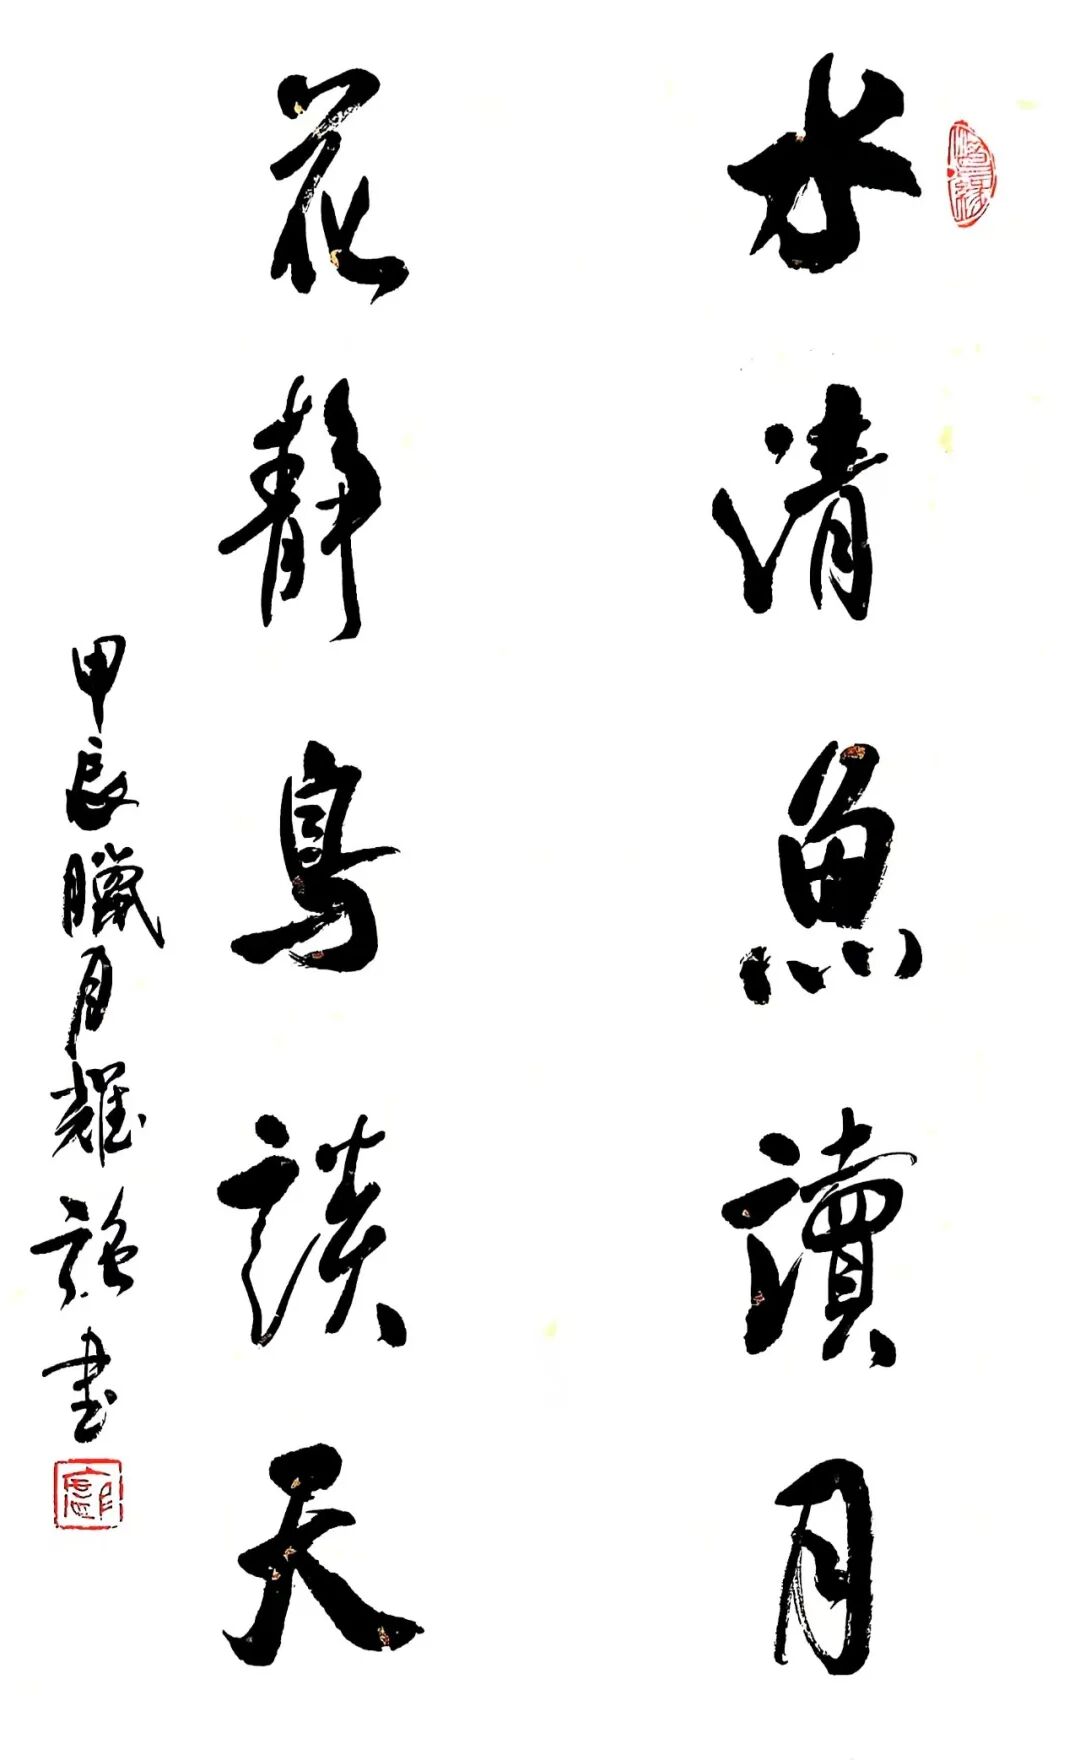 水清魚讀月
花靜鳥談天
甲辰臘月耀書